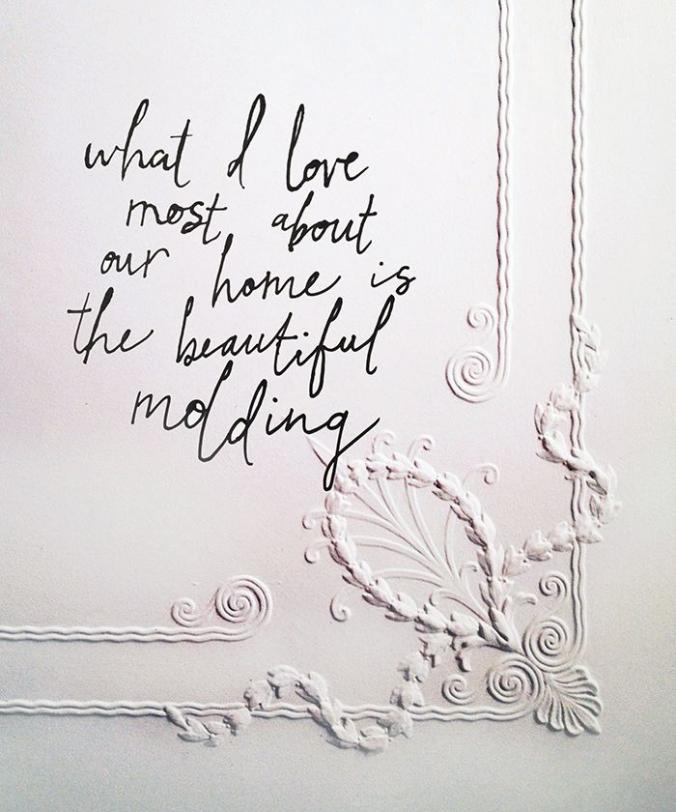 what I love
most about
our home is
the beautiful
molding